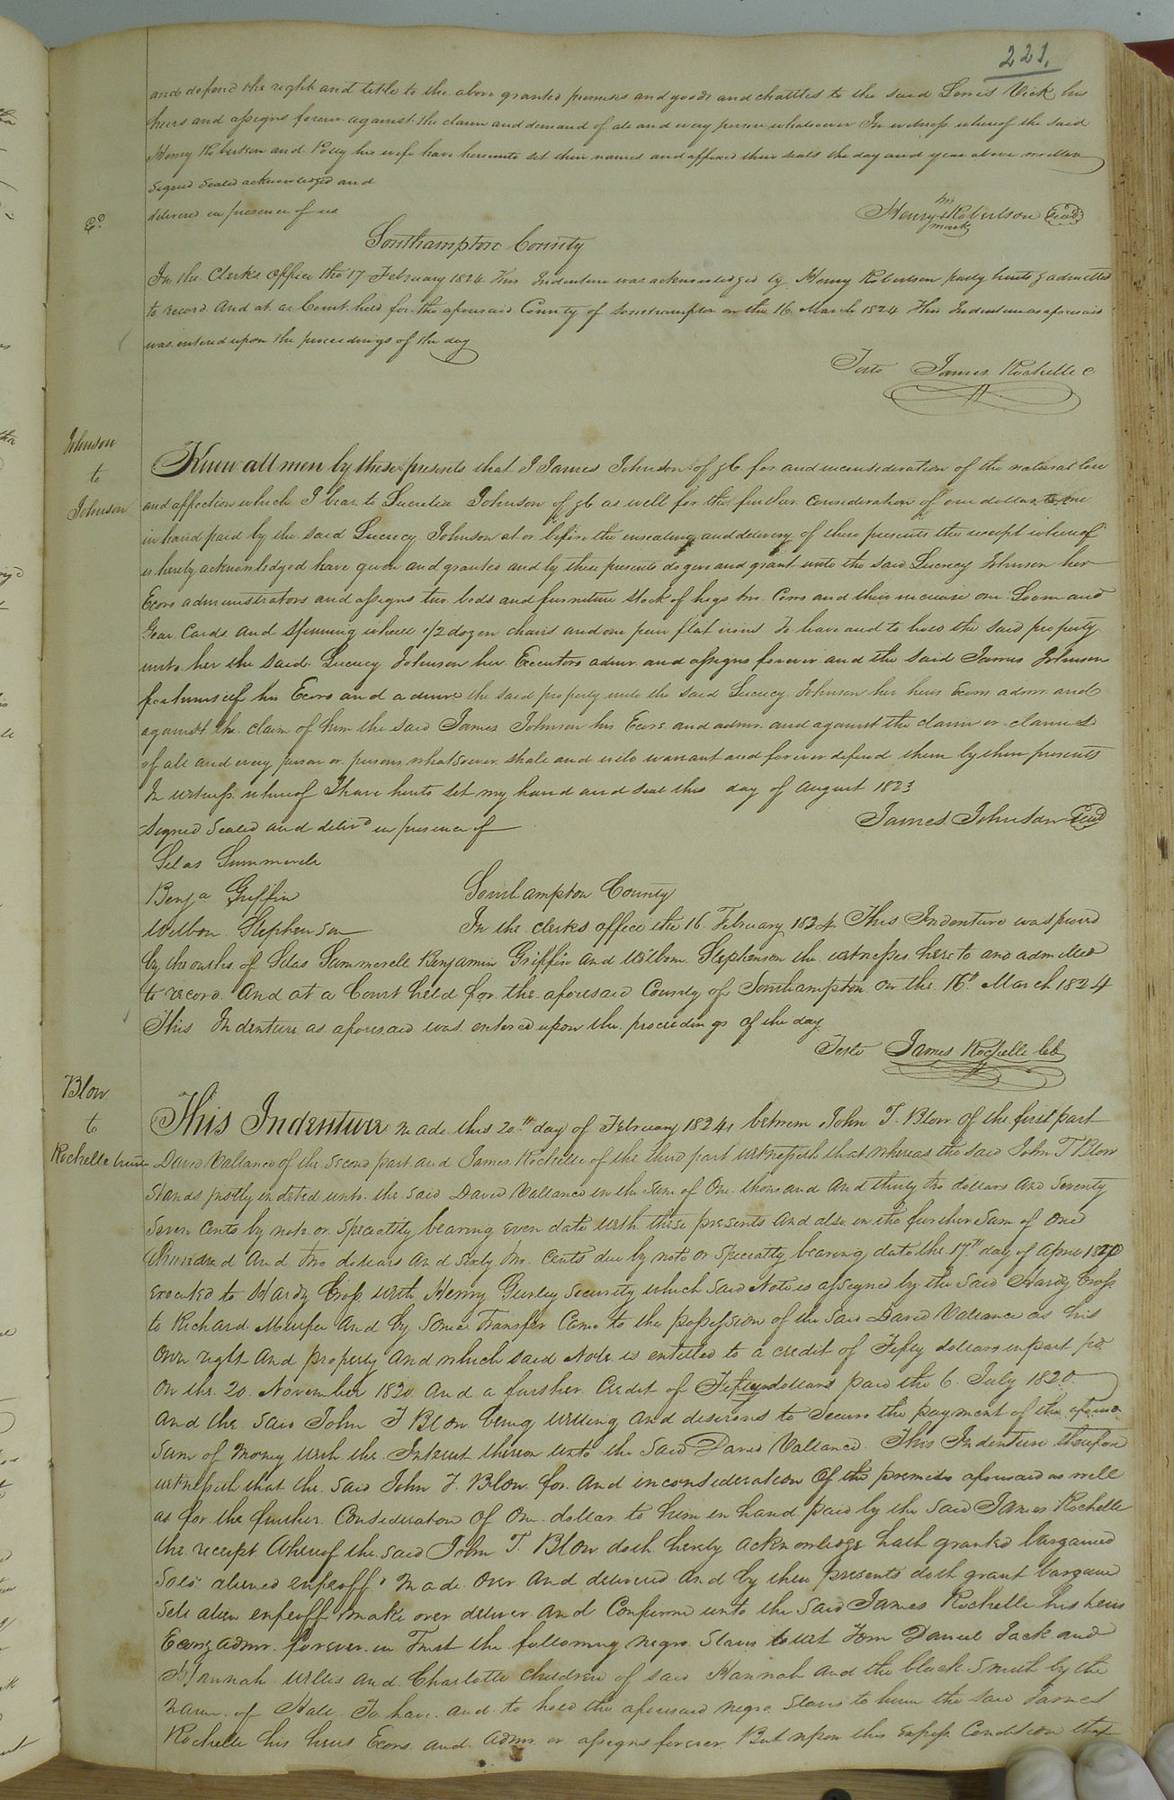 221.
and defend the right and title to the above granted premises and goods and chattles to the said Lewis Vick his
heirs and assigns forever against the claim and demand of all and every person whatsoever In witness whereof the said
Henry Robertson and Polly his wife have hereunto set their names and affixed their seals the day and year above written
Signed Sealed acknowledged and
delivered in presence of us
his
Henry + Robertson Seal
mark
Southampton County
In the Clerks office the 17 February 1824 This Indenture was acknowledged by Henry Robertson party hereto & admitted
to record And at a Court held for the aforesaid County of Southampton on the 16 March 1824 This Indenture as aforesaid
was entered upon the proceedings of the day
Teste James Rochelle C
Johnson
to
Johnson
Know all men by these presents that I James Johnson of for and in consideration of the natural love
and affection which I bear to Lucretia Johnson of as well for the further consideration of one dollar to me
in hand paid by the said Lucrecy Johnson at or before the ensealing and delivery of these presents the receipt whereof
is hereby acknowledged have given and granted and by these presents do give and grant unto the said Lucrecy Johnson her
Exors administrators and assigns two beds and furniture stock of hogs two Cows and their increase one Loom and
Gear Cards and Spinning wheel 1/2 dozen chairs and one pair flat irons To have and to hold the said property
unto her the said Lucrecy Johnson her Executors admrs and assigns forever and the said James Johnson
for himself his Exors and admrs the said property unto the said Lucrecy Johnson her heirs Exors admrs and
against the claim of him the said James Johnson his Exors and admrs and against the claim or claims
of all and every person or persons whatsoever shall and will warrant and forever defend them by these presents
In witness whereof I have hereto set my hand and seal this day of August 1823
Signed Sealed and delivd in presence of
James Johnson Seal
Silas Summerell
Benja Griffin
Wilbon Stephenson
Southampton County
In the clerks office the 16 February 1824 This Indenture was proved
by the oaths of Silas Summerell Benjamin Griffin and Wilbon Stephenson the witnesses hereto and admitted
to record And at a Court held for the aforesaid County of Southampton on the 16th March 1824
This Indenture as aforesaid was entered upon the proceedings of the day
Teste James Rochelle Clk
Blow
to
Rochelle
This Indenture made this 20th day of February 1824 between John T. Blow of the first part
David Vallance of the second part and James Rochelle of the third part witnesseth that whereas the said John T Blow
Stands justly indebted unto the said David Vallance in the Sum of One thousand And thirty two dollars and Seventy
Seven Cents by note or Specialty bearing even date with these presents and also in the further Sum of One
hundred And two dollars And Sixty two Cents due by note or Specialty bearing date the 17th day of April 1820
executed to Hardy Cross with Henry Gurley Security which Said Note is assigned by the Said Hardy Cross
to Richard Murfee And by Some Transfer Came to the possession of the Said David Vallance as his
Own right And property And which said Note is entitled to a credit of Fifty dollars in part pd
On the 20 November 1820 And a further Credit of Fifteen dollars paid the 6 July 1820
And the Said John T Blow being willing And desirous to Secure the payment of the aforesd
Sum of money with the Interest thereon unto the Said David Vallance This Indenture therefore
witnesseth that the Said John T. Blow for And in consideration Of the premises aforesaid as well
as for the further Consideration of One dollar to him in hand paid by the Said James Rochelle
the receipt whereof the said John T. Blow doth hereby acknowledge hath granted bargained
Sold aliened enfeoffd made over and delivered and by these presents doth grant bargain
Sell alien enfeoff make over deliver And Confirm unto the Said James Rochelle his heirs
Exors admrs forever in Trust the following negro Slaves to wit Tom Daniel Jack and
Hannah Willis and Charlotte children of said Hannah and the black Smith by the
name of Hall To have and to hold the aforesaid negro Slaves to him the Said James
Rochelle his heirs Exors and Admrs or assigns forever But upon this express Condition that